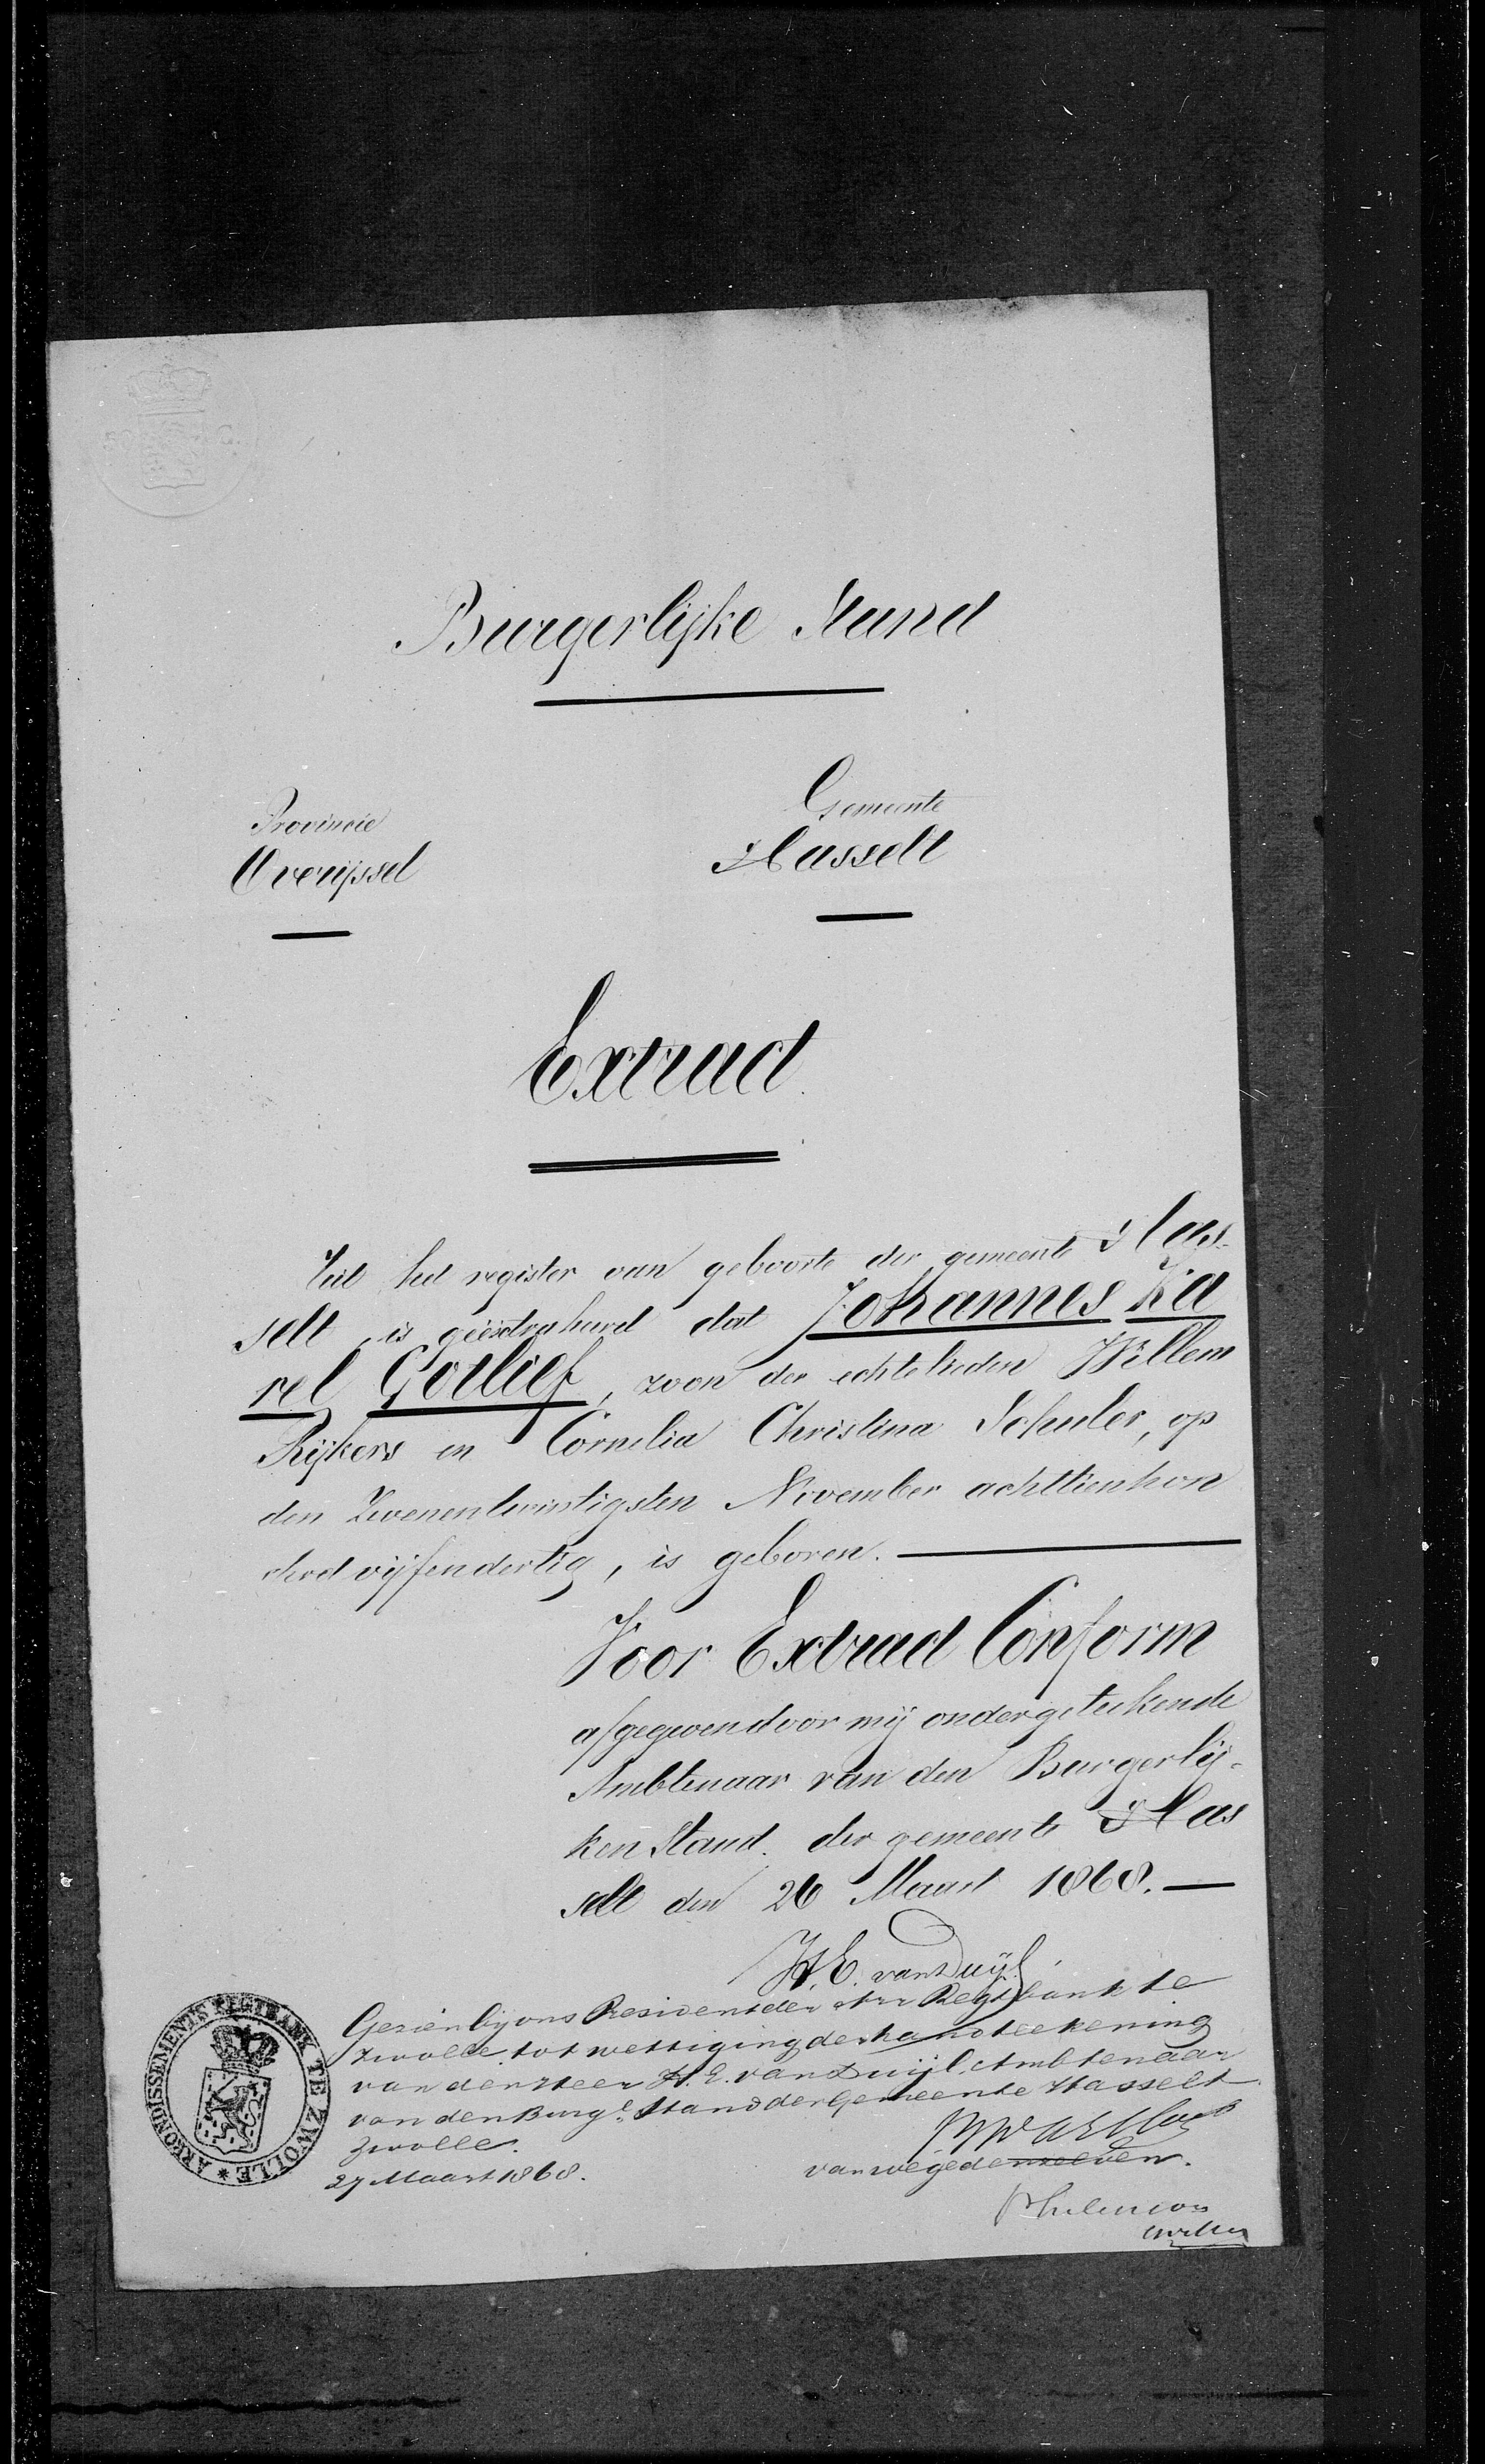 Burgerlijke Stand
Provincie
Overijssel
Gemeente
Hasselt
Extract
Uit het register van geboorte der gemeente Has-
selt is geëxtraheerd dat Johannes Ka
rel Gotlief, zoon der echtelieden Willem
Rijkers en Cornelia Christina Schuler, op
den Tweenentwintigsten November achttienhon
derd vijfendertig, is geboren.
Voor Extract Conform
afgegeven door mij ondergeteekende
Ambtenaar van den Burgerlij-
ken Stand der gemeente Has
selt den 26 Maart 1868.
H. E. van Duijl
Gezien bij ons President der Arr Regtbank te
Zwolle tot wettiging der handteekening
van den Heer H. E. van Duijl Ambtenaar
van den Burgl. Stand der Gemeente Hasselt
Zwolle
27 Maart 1868.
van wege denzelven.
ARRONDISSEMENTS REGTBANK TE ZWOLLE